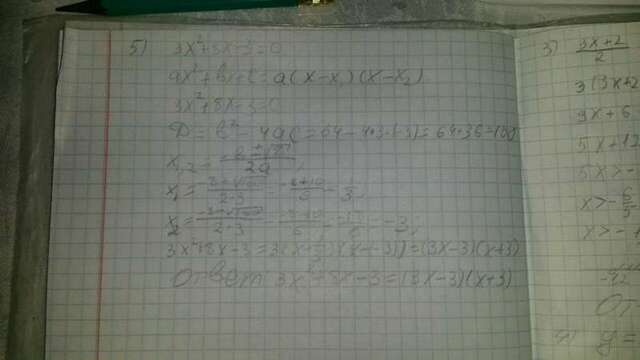 5) 3x²+8x-3=0
ax²+bx+c=a(x-x₁)(x-x₂)
3x²+8x-3=0
D=b²-4ac=64-4·3·(-3)=64+36=100
x₁,₂=(-b±√D)/2a
x₁=(-8+√100)/(2·3)=(-8+10)/6=1/3,
x₂=(-8-√100)/(2·3)=(-8-10)/6=-18/6=-3,
3x²+8x-3=3(x-1/3)(x-(-3))=(3x-3)(x+3)
Ответ 3x²+8x-3=(3x-3)(x+3)
3) (3x+2)/2
3(3x+2
9x+6
5x+12
5x>-
x>-6/5
x>-1
От
y=